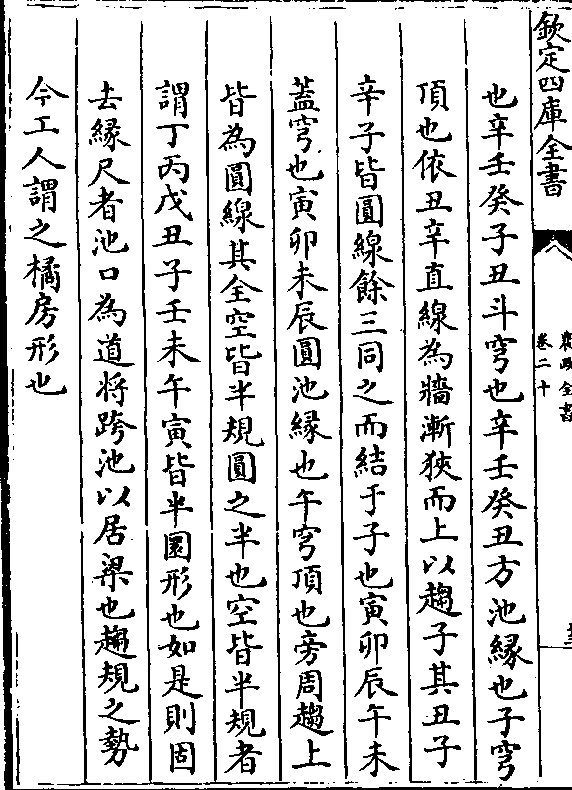 欽定四庫全書
農政全書
卷二十
也辛壬癸子丑斗穹也辛壬癸丑方池緣也子穹
頂也依丑辛直線為牆漸狹而上以趨子其丑子
辛子皆圓線餘三同之而結于子也寅卯辰午未
蓋穹也寅卯未辰圓池緣也午穹頂也旁周趨上
皆為圓線其全空皆半規圓之半也空皆半規者
謂丁丙戊丑子壬未午寅皆半圜形也如是則固
去緣尺者池口為道將跨池以居梁也趨規之勢
今工人謂之橘房形也